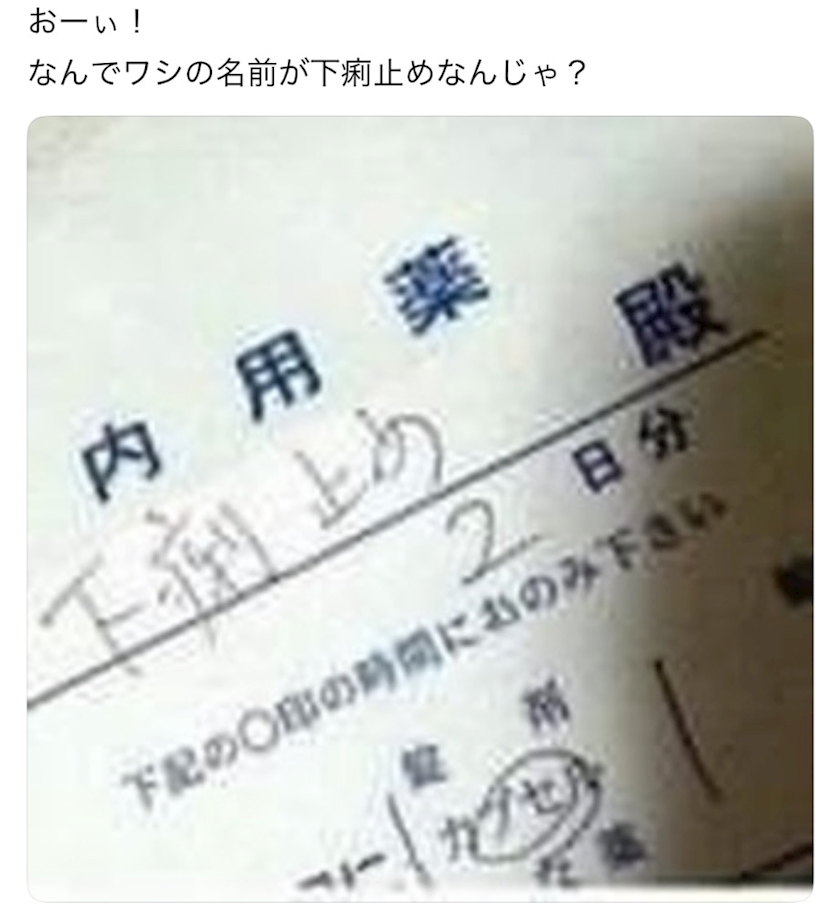 おーぃ！
なんでワシの名前が下痢止めなんじゃ？
内用薬
下痢止め 殿
2 日分
下記の〇印の時間におのみ下さい
錠 剤
カプセル
薬